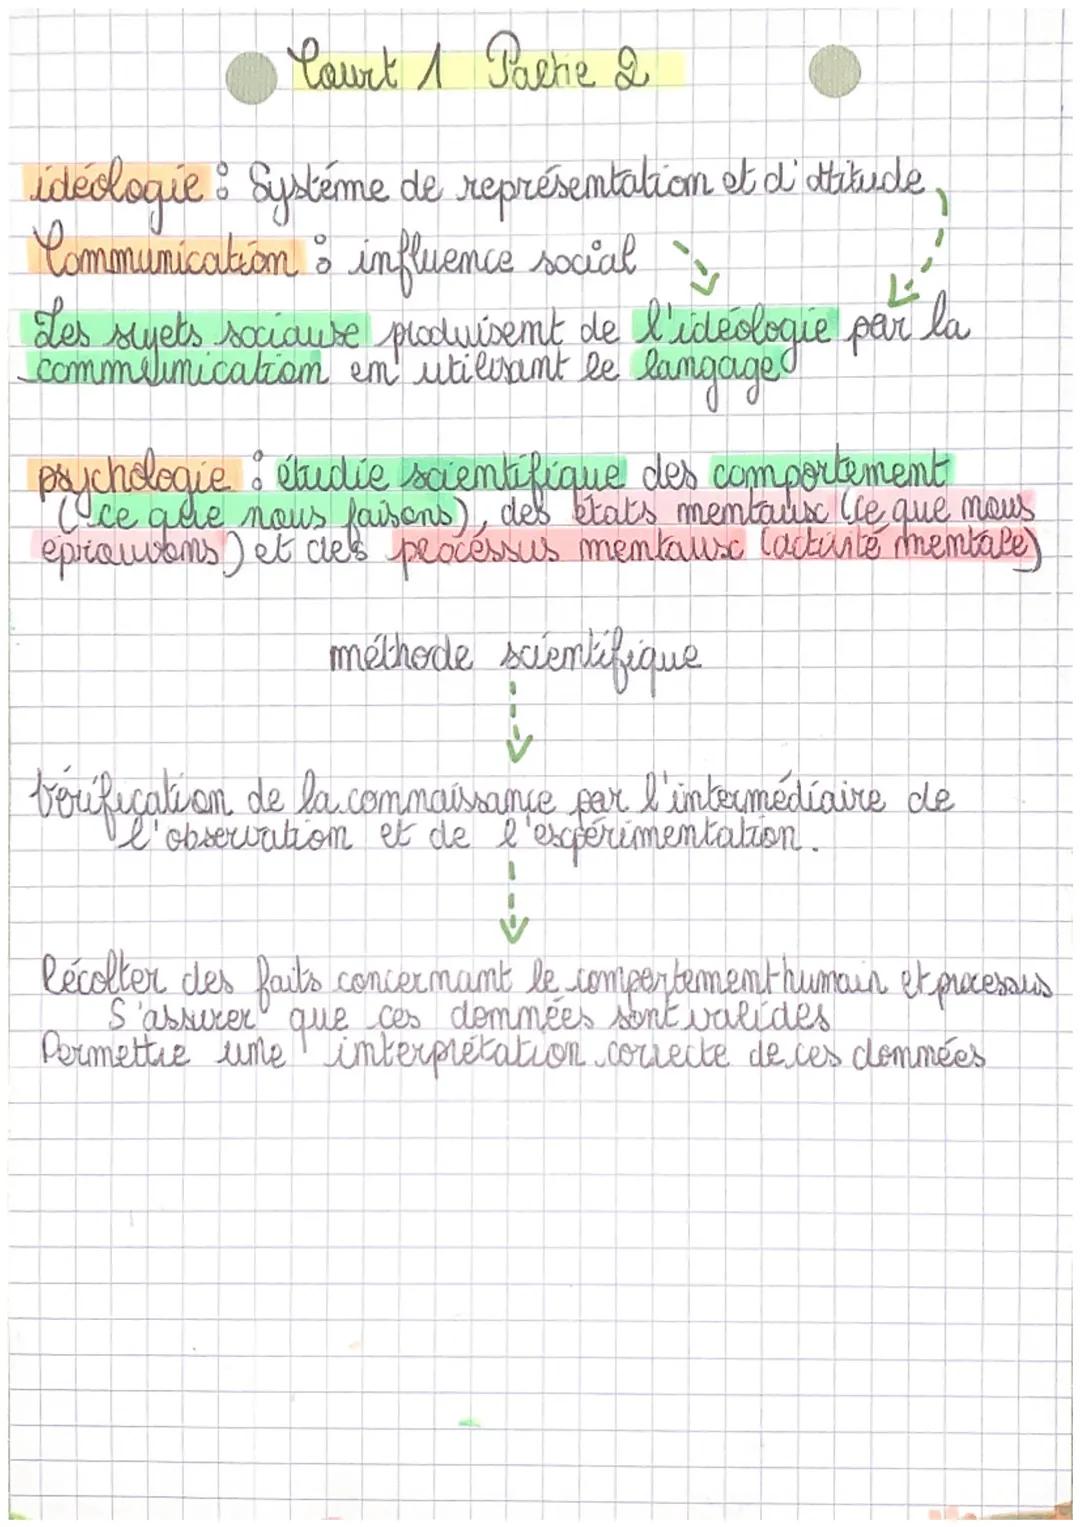 Court 1 Partie 2
idéologie : Systéme de représentation et d'attitude
Communication : influence social
Les sujets sociause produisent de l'idéologie par la
communication en utilisant le langage
psychologie : étudie scientifique des comportement
(ce que nous faisons), des états mentause (ce que nous
éprouvons) et des procéssus mentause (activité mentale)
méthode scientifique
Vérification de la connaissance par l'intermédiaire de
l'observation et de l'expérimentation.
Récolter des faits concernant le comportement humain et processus
S'assurer que ces données sont valides
Permettre une interprétation correcte de ces données